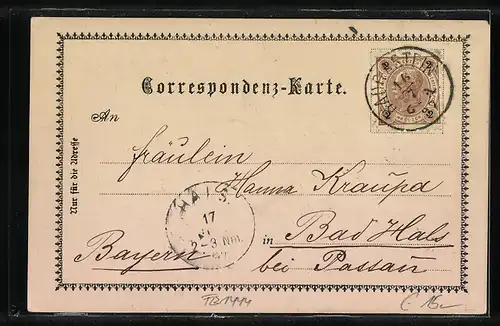 Correspondenz-Karte.
An
Fräulein
Hanna Kraupa
in Bad Hals
bei Passau
Bayern
Nur für die Adresse
HALS
17
2-3 Nm.